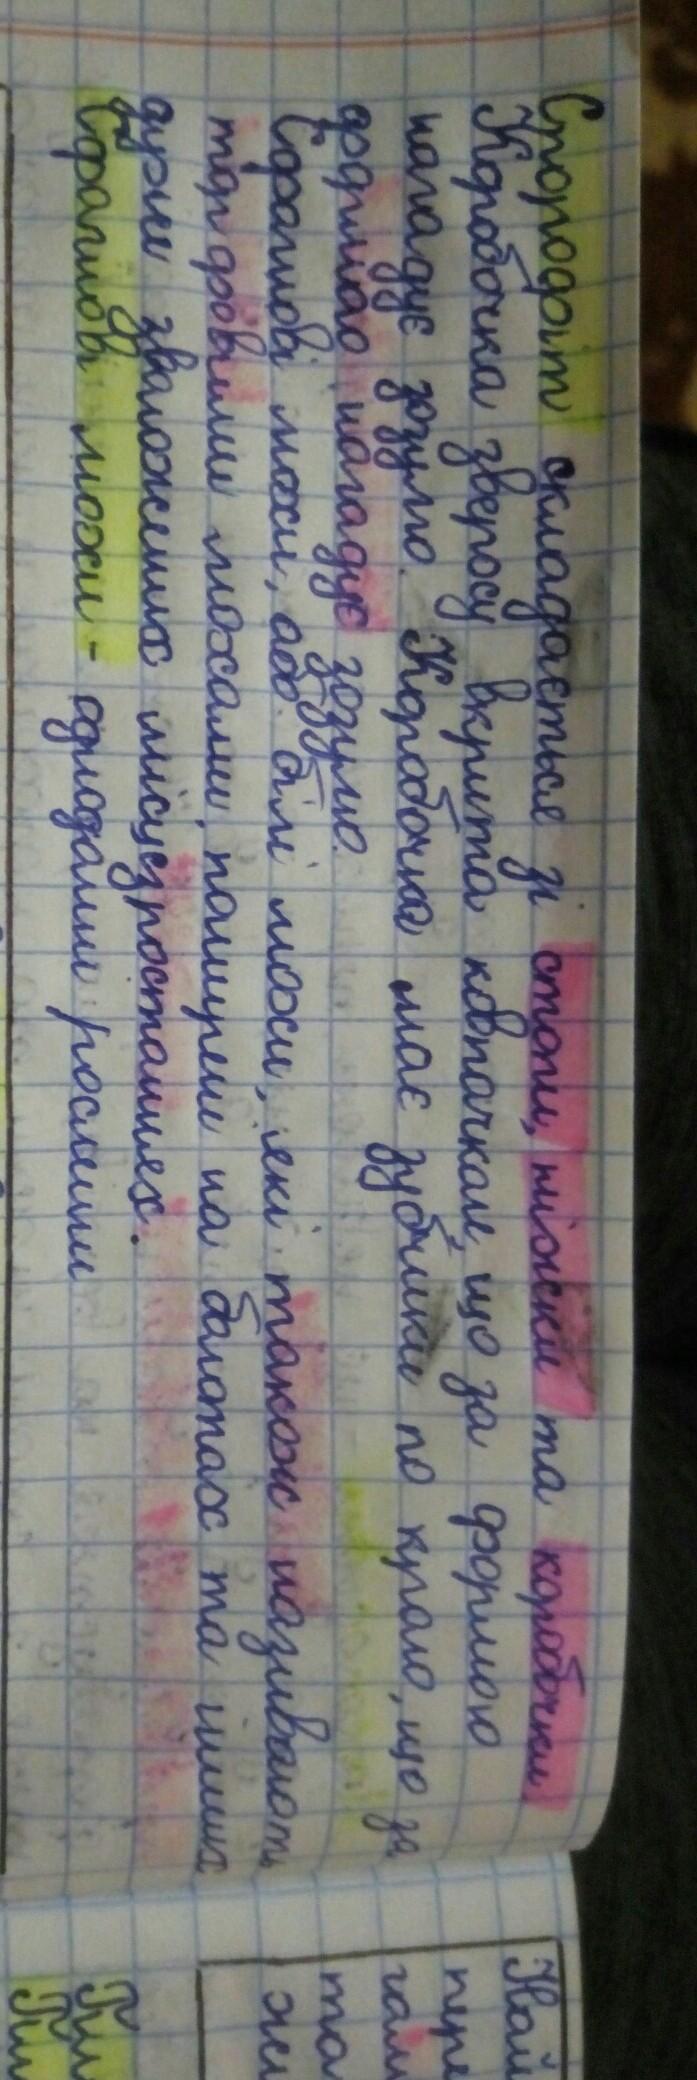 Спородіт складається зі стопи, ніжки та коробочки
Коробочка зверху вкрита ковпачком, що за формою
нагадує зозулю. Коробочка має зубчики по краю, що за
формою нагадує зозулю.
Сфагнові мохи, або білі мохи, які також називають
торфовими мохами, поширені на болотах та інших
дуже зволожених місцезростаннях.
Сфагнові мохи - однодомні рослини
Най
пере
гам
та
жи